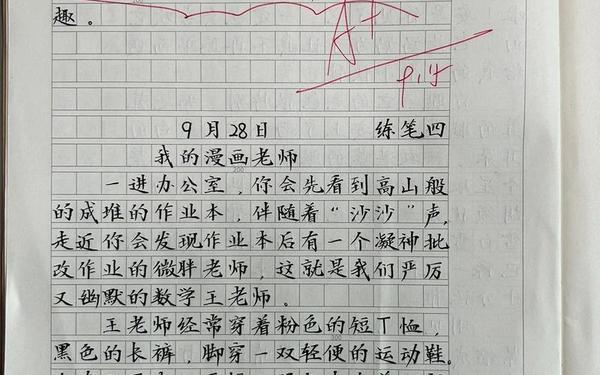 趣。
A+
9.15
9月28日 练笔四
我的漫画老师
一进办公室，你会先看到高山般
的成堆的作业本，伴随着“沙沙”声，
走近你会发现作业本后有一个凝神批
改作业的微胖老师，这就是我们严厉
又幽默的数学王老师。
王老师经常穿着粉色的短T恤
黑色的长裤，脚穿一双轻便的运动鞋。